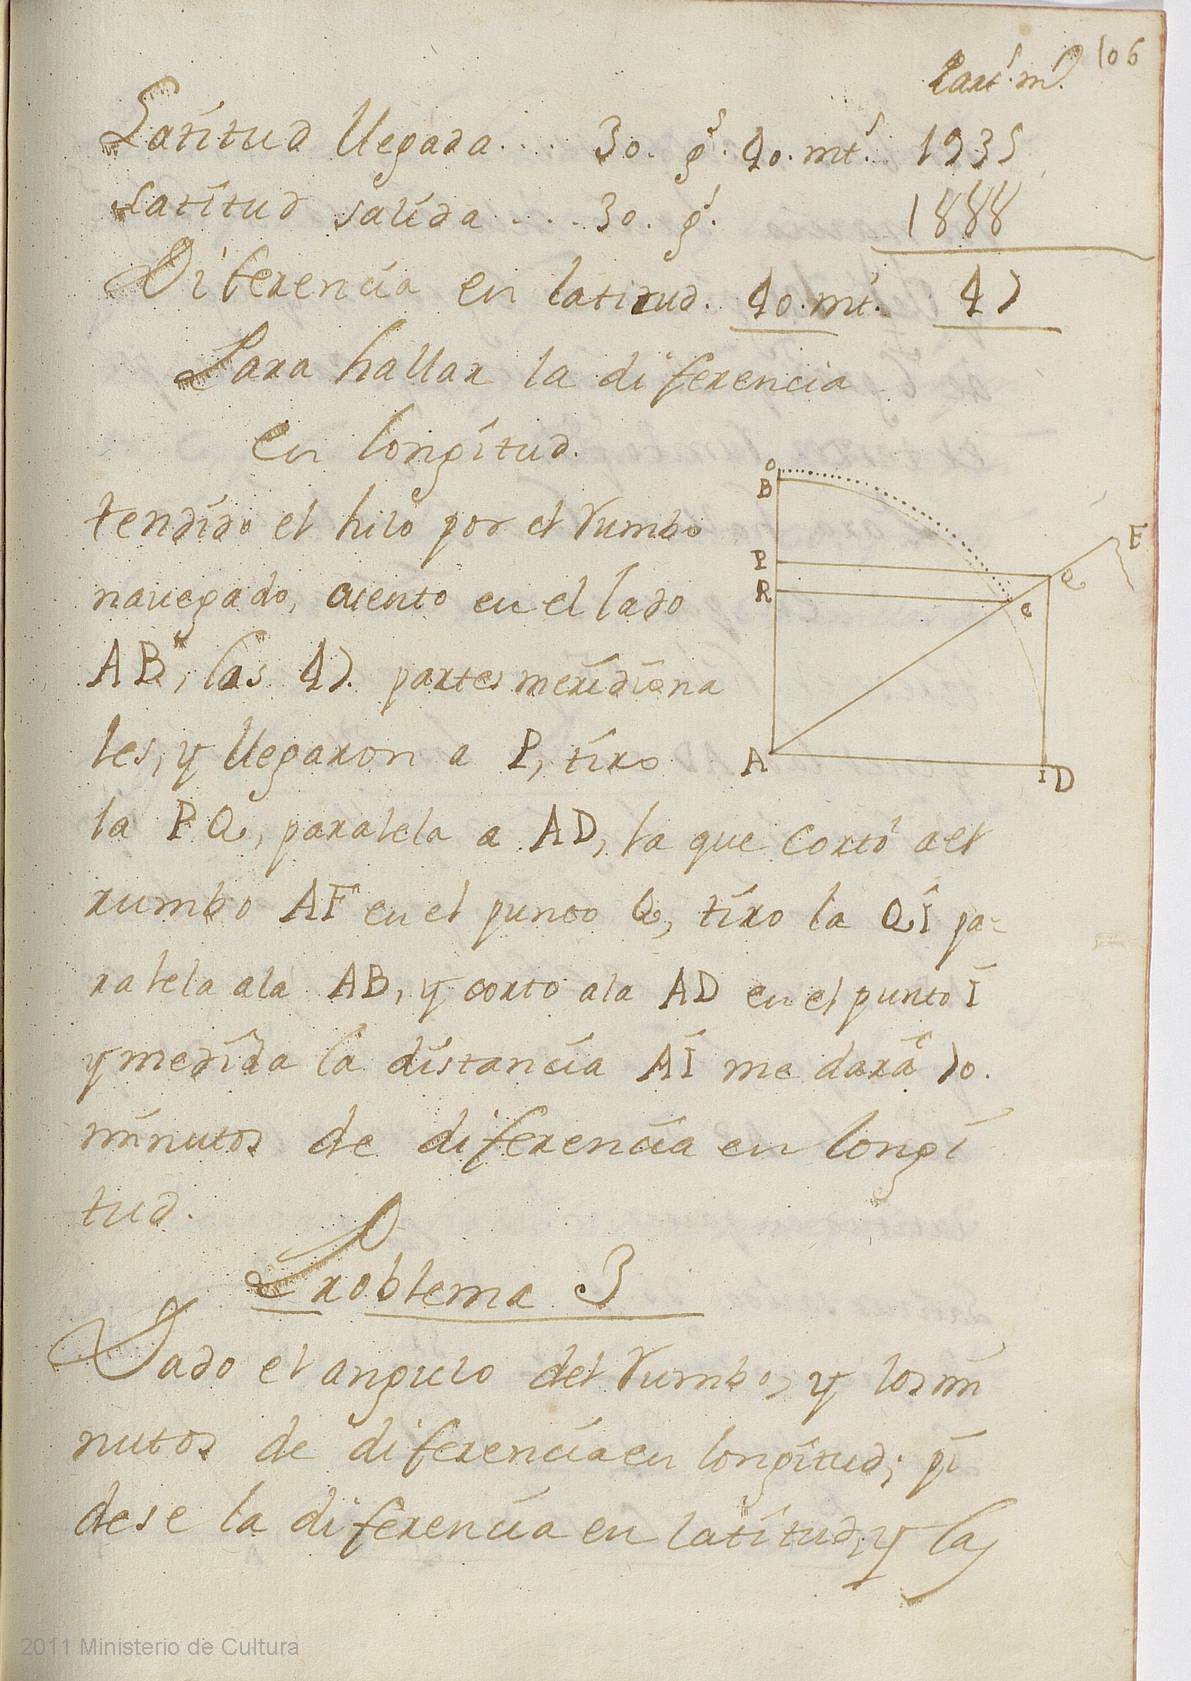 106
Part.s m.s
Latitud llegada.... 30. g.s 40. mt.s 1935
Latitud salida.... 30. g.s 1888
Diferencia en latitud. 40. mt.s 47
Para hallar la diferencia
en longitud.
tendido el hilo por el rumbo
navegado, cuento en el lado
AB, las 47. partes meridiona
les, y llegaron a P, tiro
la PQ, paralela a AD, la que cortó ael
rumbo AF en el punto Q, tiro la QI pa-
ralela ala AB, y corto ala AD en el punto I
y medida la distancia AI me dará 70.
minutos de diferencia en longi
tud.
O
B
P
R
E
Q
C
A
I D
Problema 3
Dado el angulo del rumbo, y los mi
nutos de diferencia en longitud; pi
dese la diferencia en latitud, y las
2011 Ministerio de Cultura